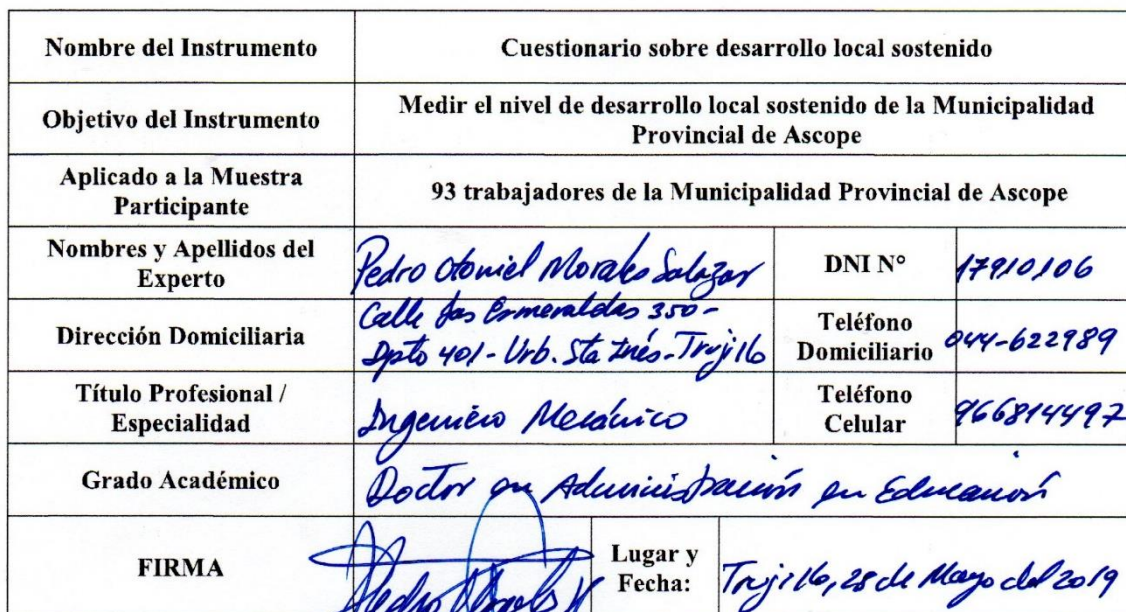 Nombre del Instrumento
Cuestionario sobre desarrollo local sostenido
Objetivo del Instrumento
Medir el nivel de desarrollo local sostenido de la Municipalidad
Provincial de Ascope
Aplicado a la Muestra
Participante
93 trabajadores de la Municipalidad Provincial de Ascope
Nombres y Apellidos del
Experto
Pedro Otoniel Morales Salazar
DNI N°
17910106
Dirección Domiciliaria
Calle Las Esmeraldas 350-
Dpto 401 - Urb. Sta Inés - Trujillo
Teléfono
Domiciliario
044-622989
Título Profesional /
Especialidad
Ingeniero Mecánico
Teléfono
Celular
966814497
Grado Académico
Doctor en Administración en Educación
FIRMA
Pedro Morales
Lugar y
Fecha:
Trujillo, 28 de Mayo del 2019